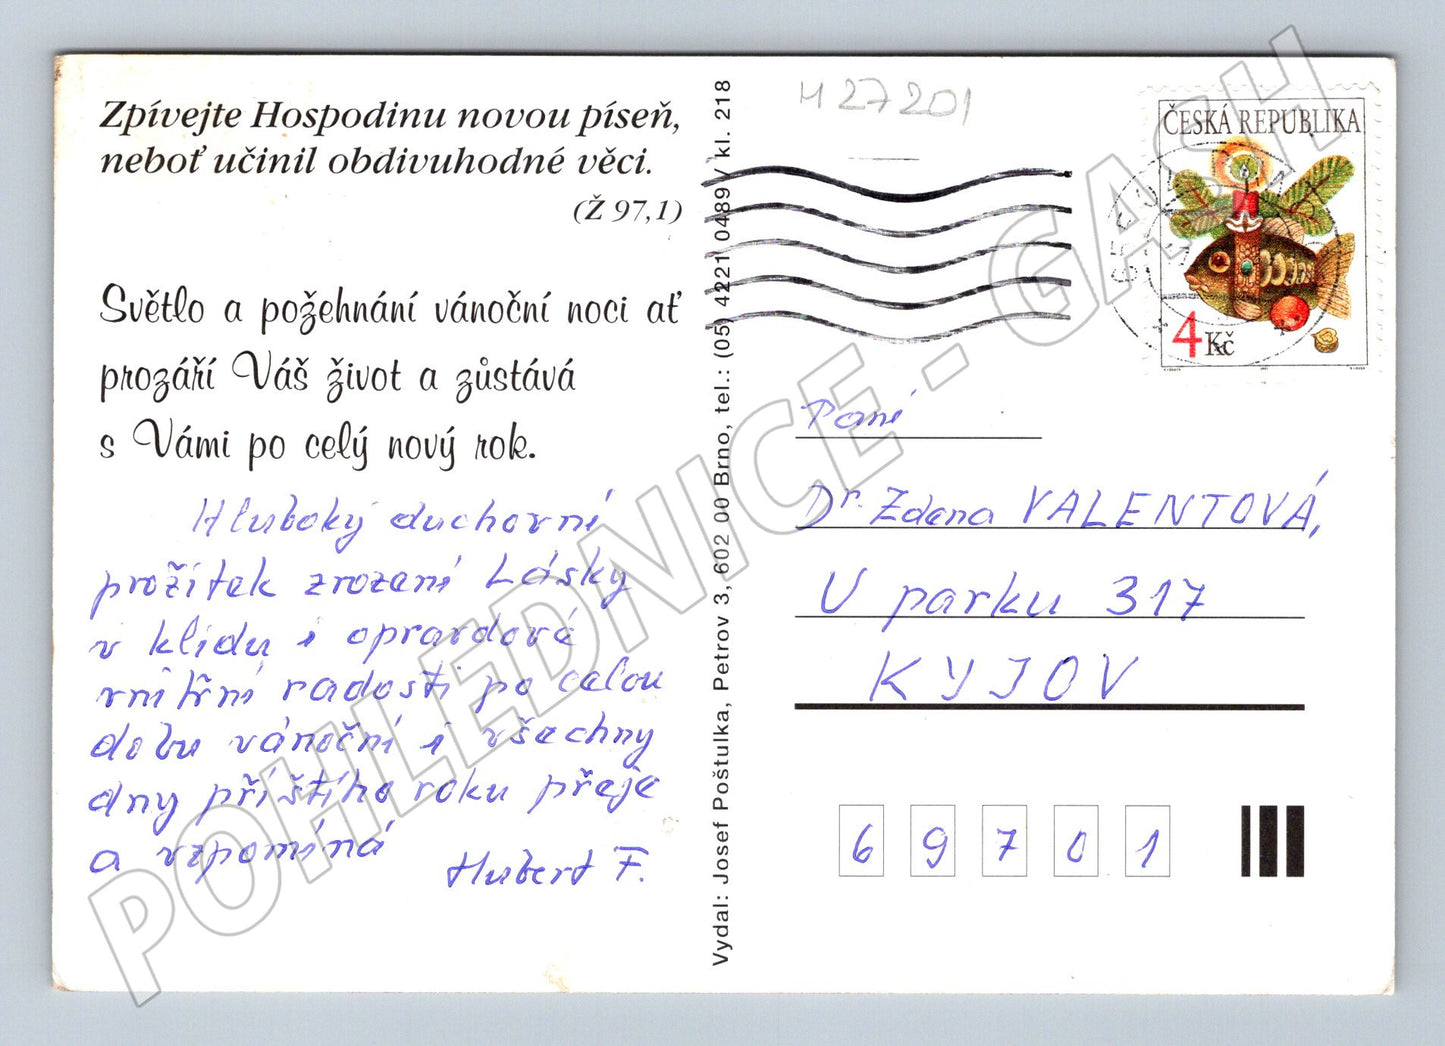 Zpívejte Hospodinu novou píseň,
neboť učinil obdivuhodné věci.
(Ž 97,1)
Světlo a požehnání vánoční noci ať
prozáří Váš život a zůstává
s Vámi po celý nový rok.
Hluboký duchovní
prožitek zrození Lásky
v klidu i opravdové
vnitřní radosti po celou
dobu vánoční i všechny
dny příštího roku přeje
a vzpomíná
Hubert F.
Vydal: Josef Poštulka, Petrov 3, 602 00 Brno, tel.: (05) 4221 0489 / kl. 218
H 27201
ČESKÁ REPUBLIKA
4 Kč
Paní
Dr. Zdena VALENTOVÁ,
U parku 317
KYJOV
69701
POHLEDNICE - GASH